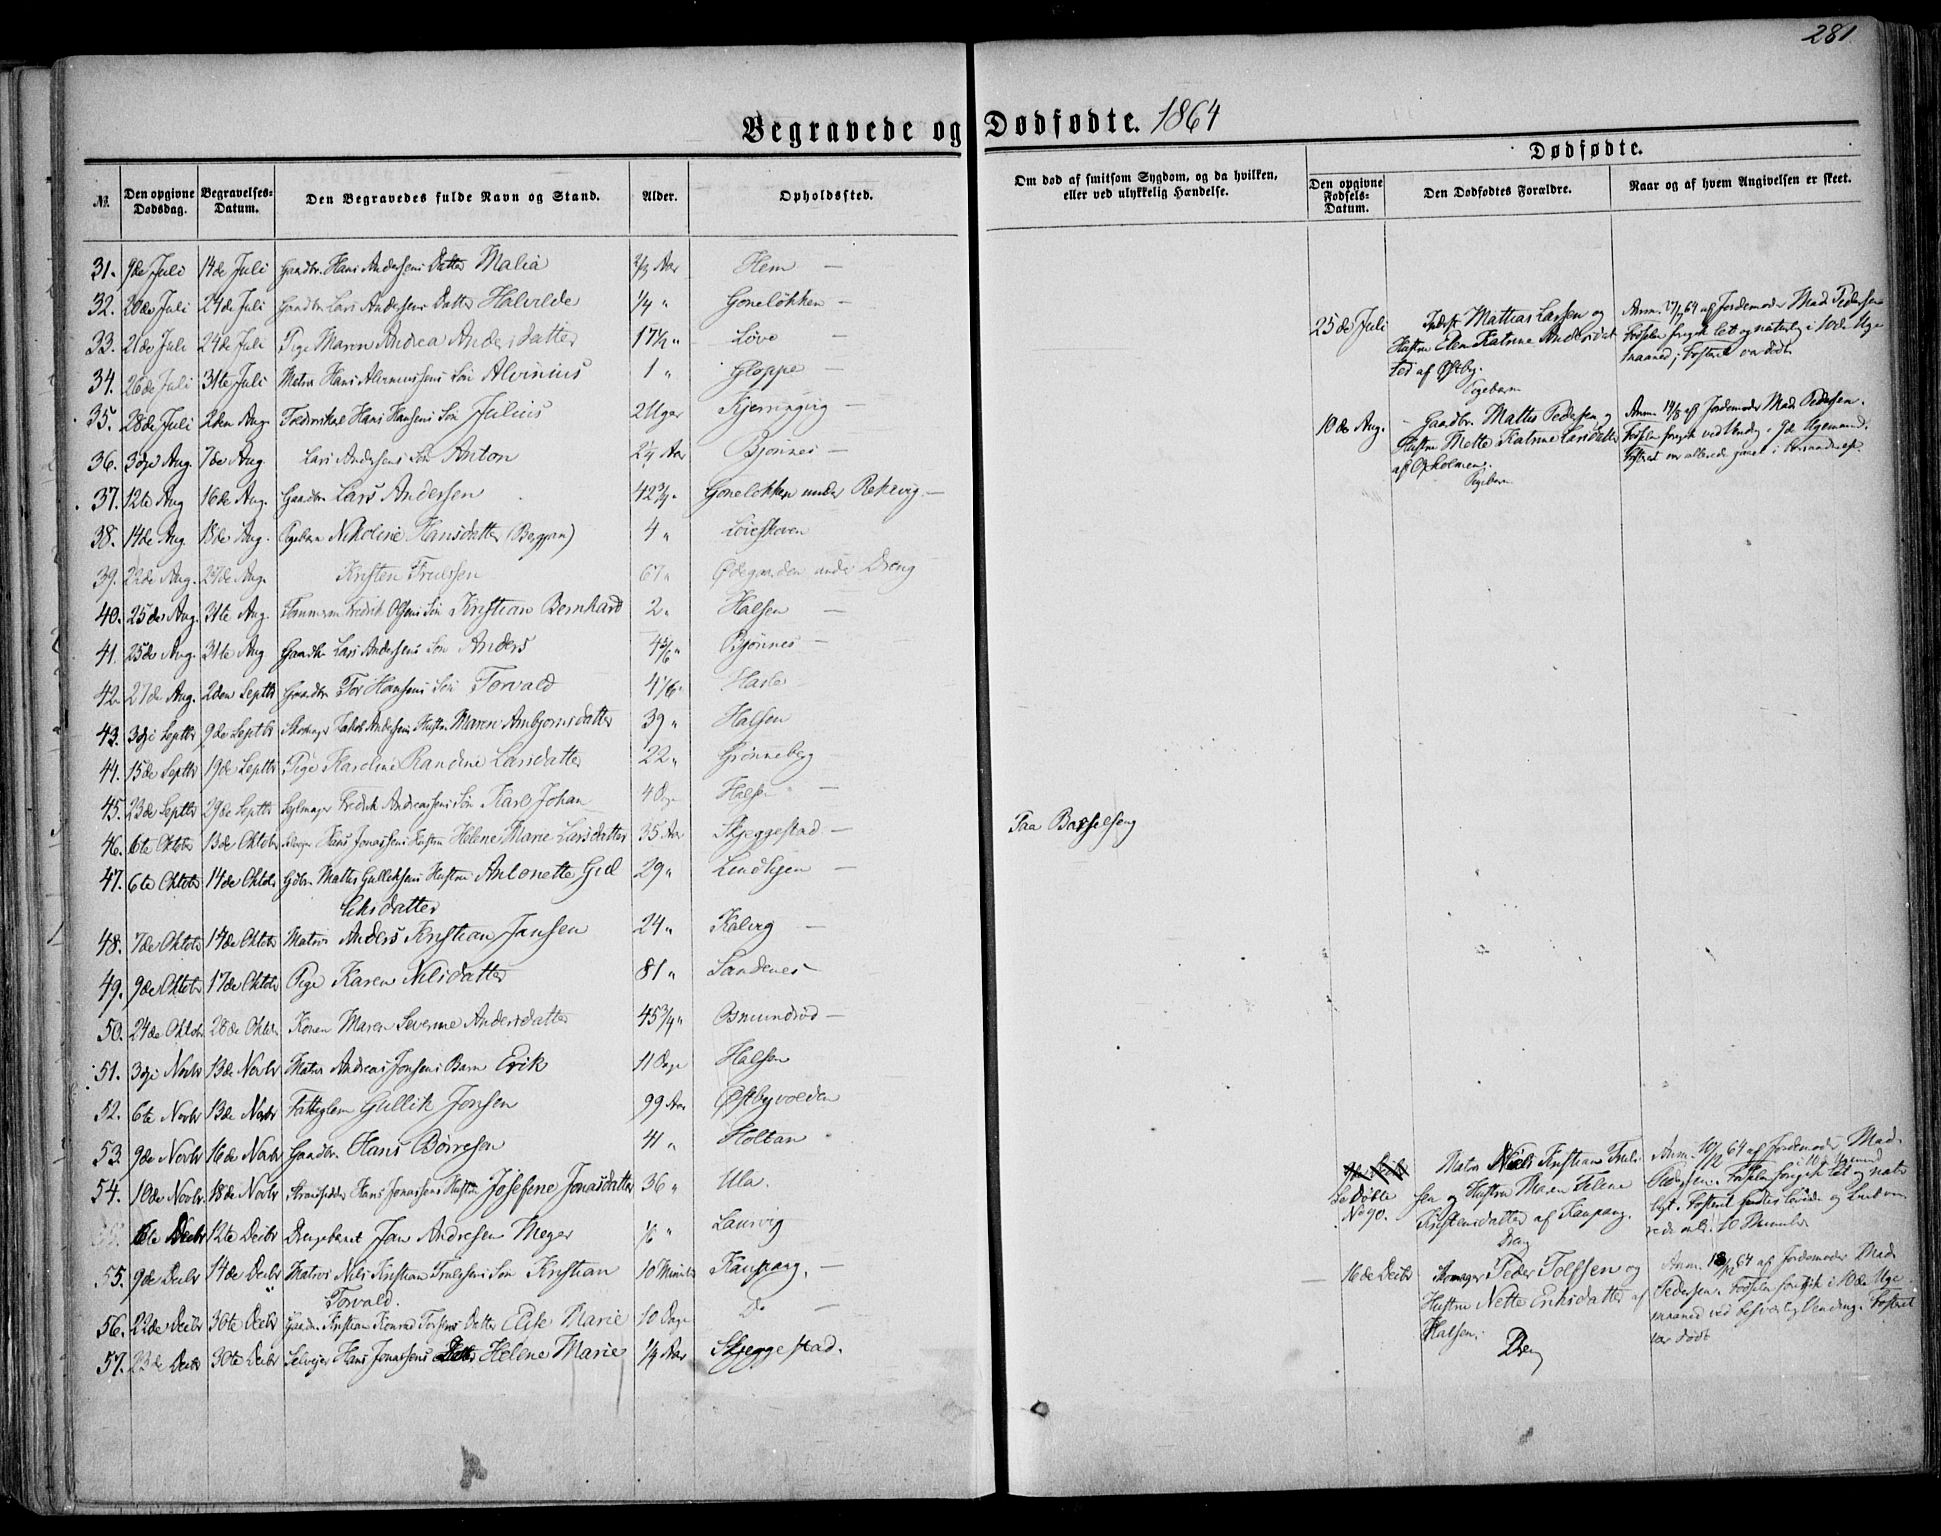 281.
Begravede og Dødfødte. 1864
Dødfødte.
№ Den opgivne Dødsdag. Begravelses-Datum. Den Begravedes fulde Navn og Stand. Alder. Opholdssted. Om død af smitsom Sygdom, og da hvilken, eller ved ulykkelig Hændelse. Den opgivne Fødsels-Datum. Den Dødfødtes Forældre. Naar og af hvem Angivelsen er skeet.
31. 9de Juli 14de Juli Gaardbr. Hans Andersens Datter Malia 2/3 Aar Hem —
32. 20de Juli 24de Juli Gaardbr Lars Andersens Datter Halvilde 1/4 " Goneløkken —
33. 21de Juli 24de Juli Pige Maren Andrea Andersdatter 17½ " Løve —
34. 26de Juli 31te Juli Matros Hans Alvinussens Søn Alvinius 1 " Gloppe —
35. 28de Juli 2den Aug. Hans Hansens Søn Julius 2 Uger Kjerringvig —
36. 3die Aug. 7de Aug. Lars Andersens Søn Anton 2¼ Aar Bjønnes —
37. 12te Aug 16de Aug. Gaardbr Lars Andersen 42¾ " Goneløkken under Rekevig —
38. 14de Aug. 18de Aug. Pigebarn Nikoline Hansdatter 4 " Løveskoven
39. 22de Aug. 27de Aug. Kristen Trulssen 67 " Ødegaarden under Dreng
40. 25de Aug. 31te Aug. Tømmerm Fredrik Olsens Søn Kristian Bernhard 2 " Halsen —
41. 25de Aug. 31te Aug Gaardbr Lars Andersens Søn Anders 4 5/6 " Bjønnes —
42. 27de Aug. 2den Septbr Gaardbr Tor Hansens Søn Torvald 4 1/6 " Hasle —
43. 3die Septbr 9de Septbr Skomager Jakob Andersens Hustru Maren Arnbjørnsdatter 39 " Halsen
44. 15de Septbr 19de Septbr Pige Karoline Randine Larsdatter 22 " Grønneberg
45. 23de Septbr 29de Septbr Seilmager Fredrik Andreassens Søn Karl Johan 4 Dage Halsen —
46. 6te Oktobr 13de Oktobr Selveger Hans Jonassens Hustru Helene Marie Larsdatter 35 Aar Skjeggestad — Paa Barselseng
47. 6te Oktobr 14de Oktobr Gdbr. Mathis Gulliksens Hustru Antonette Gul
liksdatter 29 " Lindhjem —
48. 7de Oktobr 14de Oktobr Matros Anders Kristian Jansen 24 " Kalvig —
49. 9de Oktobr 17de Oktobr Pige Karen Nilsdatter 81 " Sandenes —
50. 24de Oktobr 28de Oktbr. Konen Maren Severine Andersdatter 45¾ " Osmundrød —
51. 3die Novbr 13de Novbr Matros Andreas Jonsens Barn Erik 11 Dage Halsen
52. 6te Novbr 13de Novbr Fattiglem Gullik Jonsen 99 Aar Østbyvolden
53. 9de Novbr 16de Novbr Gaardbr. Hans Børresen 41 " Holtan
54. 10de Novbr 18de Novbr Strandsidder Hans Jonassens Hustru Josefine Jonasdatter 36 " Ula.
6te Decbr 12te Decbr Drengebarnet Jan Andresen Meyer " Laurvig
55. 9de Decbr 14de Decbr Matros Nils Kristian Trulssens Søn Kristian
Torvald. 10 Minuter Kaupang. —
56. 22de Decbr 30te Decbr Gaardbr. Kristian Konrad Torsens Datter Elise Marie 10 Dage Do —
57. 23de Decbr 30te Decbr Selveier Hans Jonassens Datter Helene Marie 1/4 Aar Skjeggestad.
25de Juli Inderst Mathias Larsen og
Hustru Elen Katrine Andersdat
ter af Østby.
Pigebarn
Anm. 27/7 64 af Jordemoder Mad. Pedersen
Fødselen foregik let og naturlig i 10de Uge
maaned; Fostret var dødt.
10de Aug. — Gaardbr. Mathis Pedersen og
Hustru Mette Katrine Larsdatter
af Holmen.
Pigebarn
Anm. 14/8 af Jordemoder Mad. Pedersen.
Fødselen foregik ved Vending i Ugemaaned.
Fostret var allerede gaaet i Forraadnelse
Se Døbte
No 90.
Matros Niels Kristian Truls
sen og Hustru Maren Helene
Kristensdatter af Kaupang.
Dreng
Anm. 10/12 64 af Jordemoder Mad.
Pedersen. Fødselen foregik let og natur
ligt. Fostret
16de Decbr Skomager Peder Tollfsen og
Hustru Nette Eriksdatter af
Halsen.
Dreng
Anm. 18/12 64 af Jordemoder Mad.
Pedersen. Fødselen foregik i 10de Uge
maaned ved besværlig Vending. Fostret
var dødt